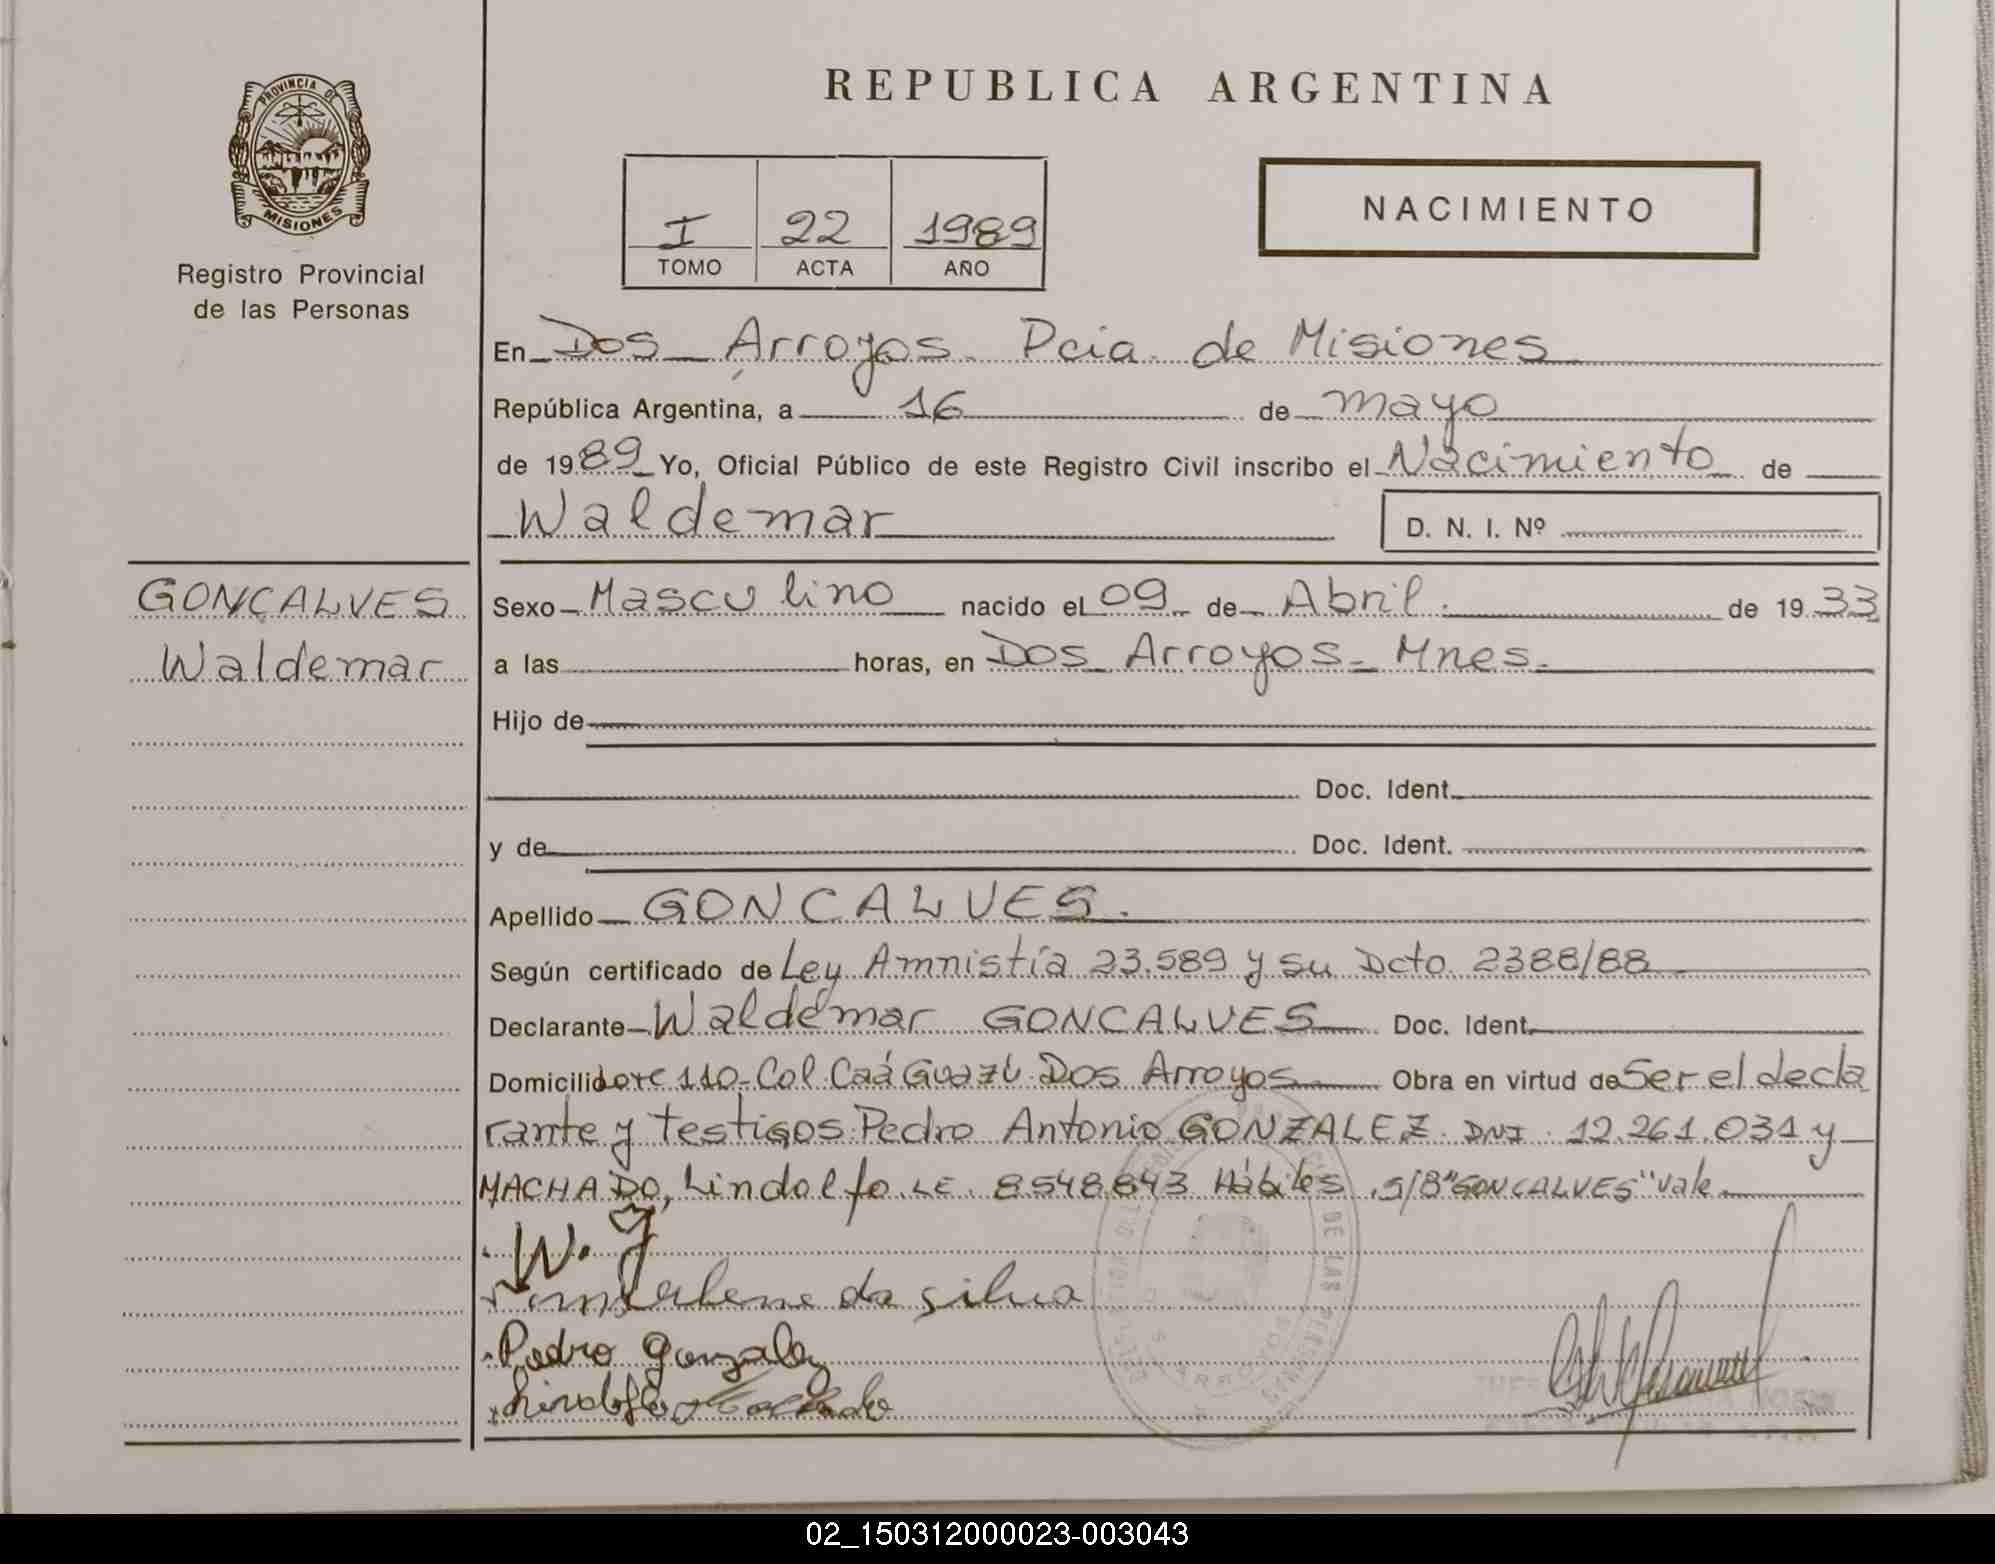 REPUBLICA ARGENTINA
PROVINCIA DE
MISIONES
Registro Provincial
de las Personas
I 22 1989
TOMO ACTA AÑO
NACIMIENTO
En Dos Arroyos. Pcia. de Misiones
República Argentina, a 16 de mayo
de 1989 Yo, Oficial Público de este Registro Civil inscribo el Nacimiento de
Waldemar D. N. I. Nº
GONÇALVES
Waldemar
Sexo Masculino nacido el 09 de Abril. de 1933
a las horas, en Dos Arroyos - Mnes.
Hijo de
Doc. Ident.
y de Doc. Ident.
Apellido GONCALVES.
Según certificado de Ley Amnistía 23.589 y su Dcto 2388/88
Declarante Waldemar GONCALVES Doc. Ident.
Domicilio Lote 110 - Col. Caá Guazú. Dos Arroyos Obra en virtud de Ser el decla
rante y testigos: Pedro Antonio GONZALEZ DNI 12.261.031 y
MACHADO, Lindolfo. LE. 8548843 Hábiles. S/B "GONCALVES" vale
W. g
da silva
Pedro Gonzalez
Lindolfo Machado
DOS ARROYOS
DE LAS PERSONAS
02_150312000023-003043